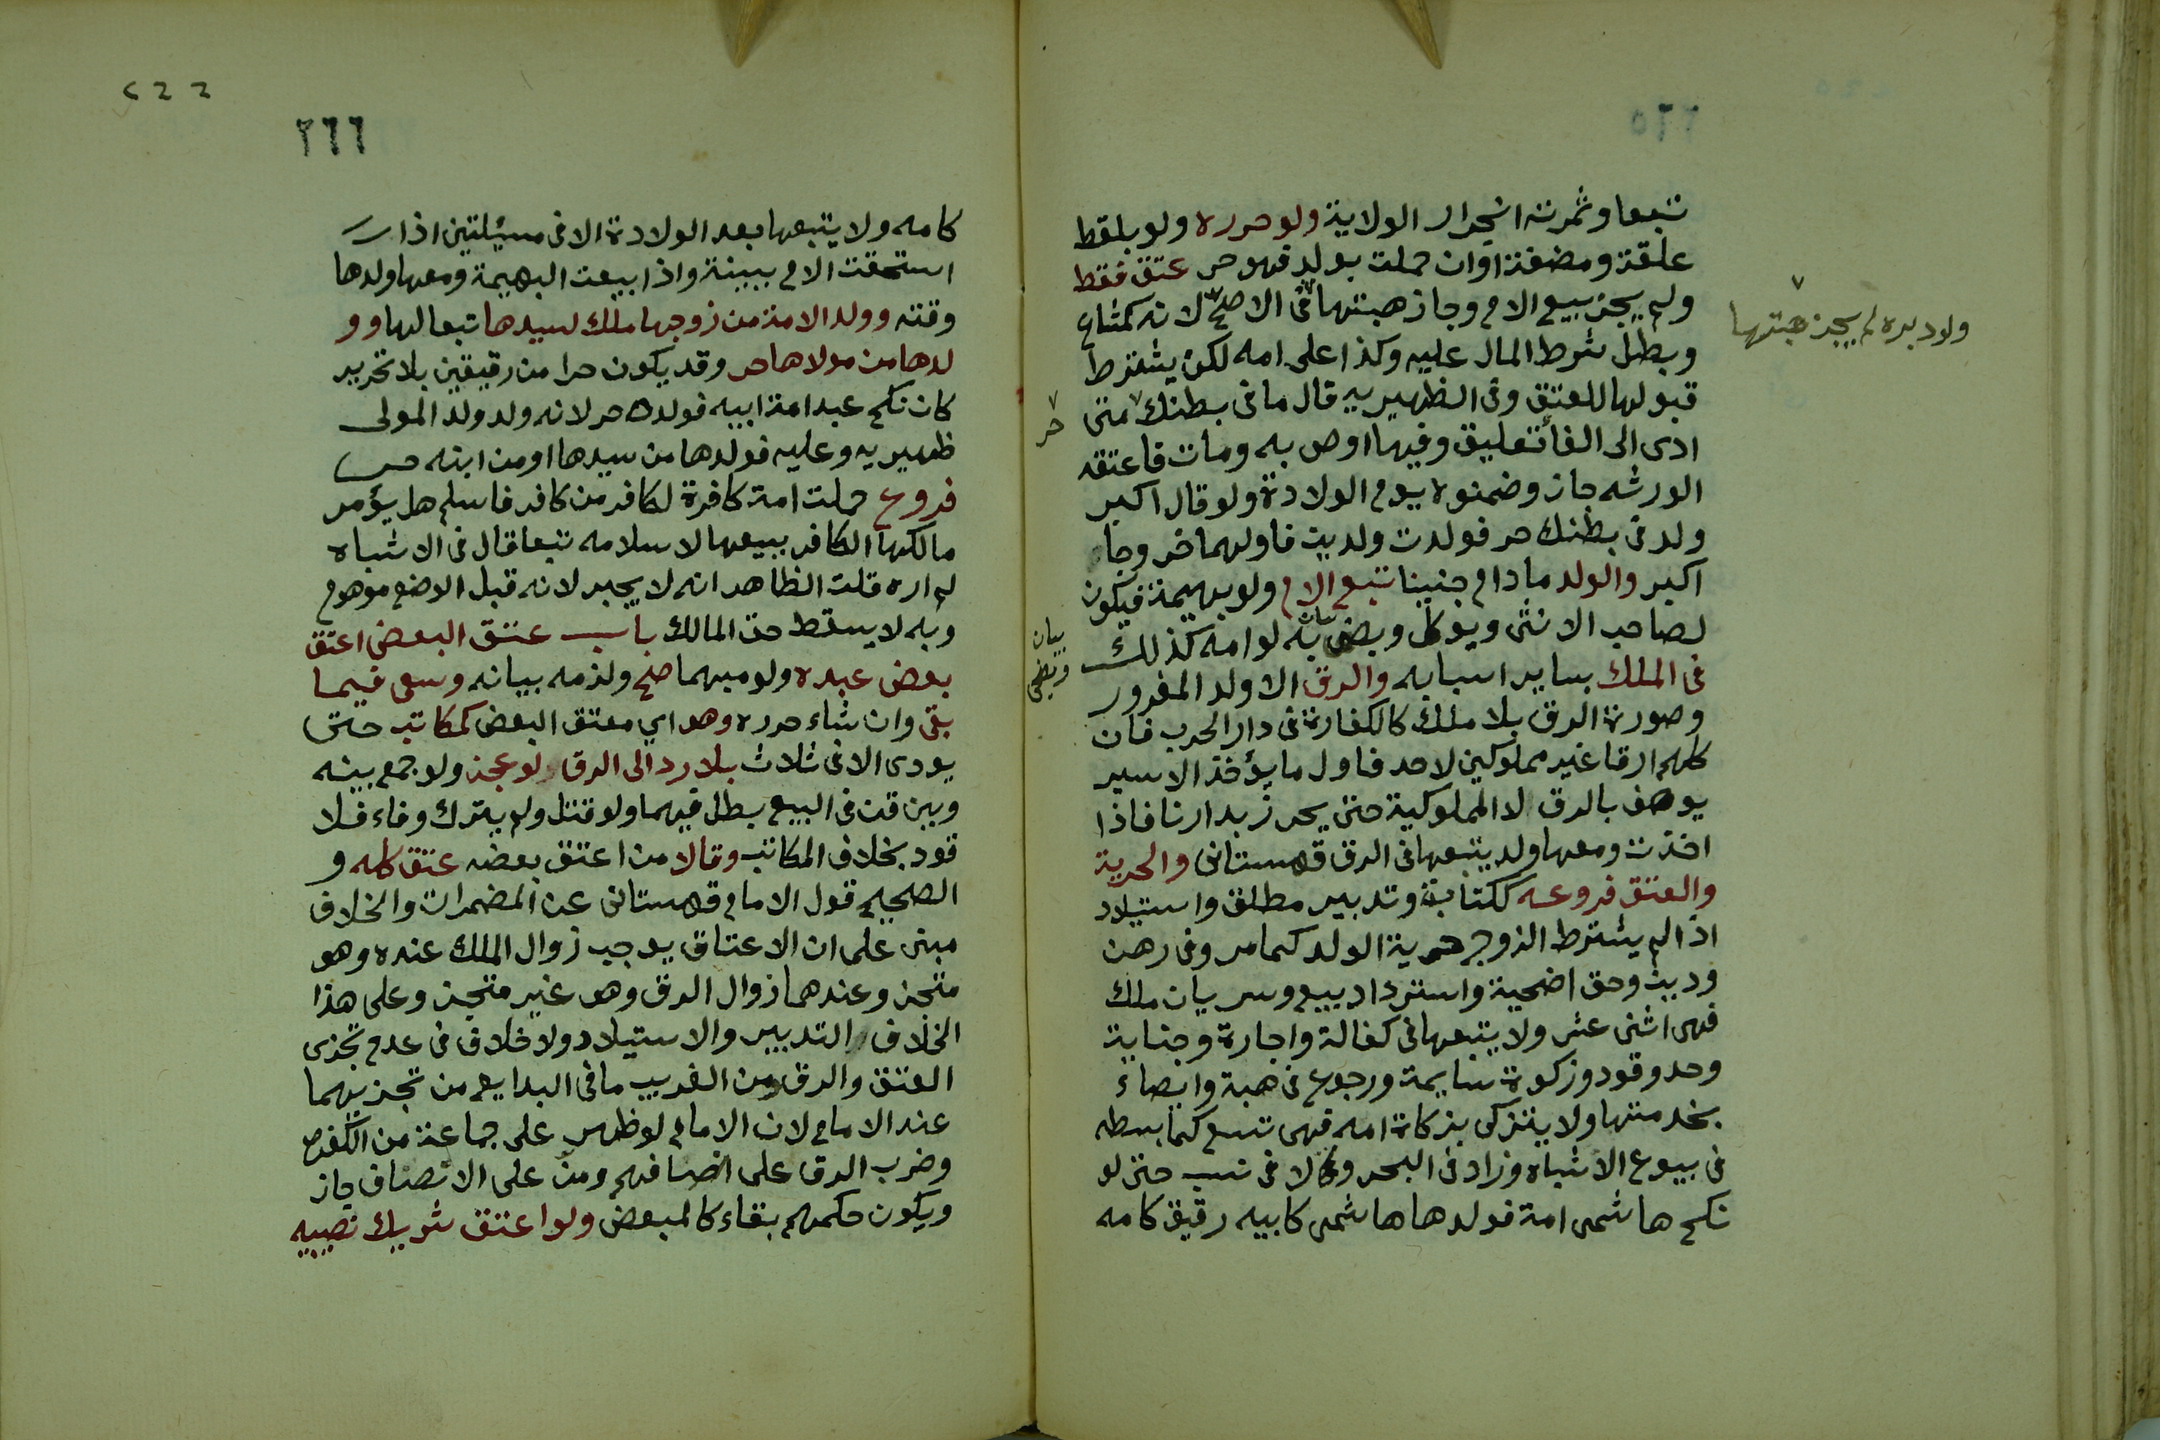 تبعا وثمرته انجرار الولاية ولو حرره ولو بلفظ
علقة ومضغة او ان حملت بولد فهو حر عتق فقط
ولم يجز بيع الام وجاز هبتها في الاصح لانه كمشاع
وبطل شرط المال عليه وكذا على امه لكن يشترط
قبولها للعتق وفي الظهيريه قال ما في بطنك متى
ادى الى الفا تعليق وفيها اوصى به ومات فاعتقه
الورثه جاز وضمنوه يوم الولادة ولو قال اكبر
ولد في بطنك حر فولدت ولدين فاولهما خروجا
اكبر والولد مادام جنينا تبع الام ولو بهيمة فيكون
لصاحب الانثى ويوكل ويضحى به لو امه كذلك
في الملك بساير اسبابه والرق الا ولد المغرور
وصورة الرق بلا ملك كالكفارة في دار الحرب فان
كلهم ارقا غير مملوكين لاحد فاول ما يؤخذ الاسير
يوصف بالرق لا المملوكية حتى يحرز بدارنا فاذا
اخذت ومعها ولد يتبعها في الرق قهستاني والحرية
والعتق فروعه ككتابة وتدبير مطلق واستيلاد
اذا لم يشترط الزوج حرية الولد كما مر وفي رهن
ودين وحق اضحية واسترداد ببيع وسريان ملك
فهى اثنى عشر ولا يتبعها في كفالة واجارة وجناية
وحد وقود وزكوة سايمة ورجوع في هبة وايصاء
بخدمتها ولا يتزكى بزكاة امه فهى تسع كما بسطه
في بيوع الاشباه وزاد في البحر ولا في نسب حتى لو
نكح هاشمى امة فولدها هاشمى كابيه رقيق كامه
ولو دبره لم يجز هبتها
حر
بيان
ويضحى
٢٦٦
كامه ولا يتبعها بعد الولادة الا في مسئلتين اذا
استحقت الام ببينة واذا بيعت البهيمة ومعها ولدها
وقته وولد الامة من زوجها ملك لسيدها تبعا لها وو
لدها من مولاها حر وقد يكون حرا من رقيقين بلا تحرير
كان نكح عبد امة ابيه فولده حر لانه ولد ولد المولى
ظهيريه وعليه فولدها من سيدها او من ابنه حر
فروع حملت امة كافرة لكافر من كافر فاسلم هل يؤمر
مالكها الكافر ببيعها لاسلامه تبعا قال في الاشباه
لم اره قلت الظاهر انه لا يجبر لانه قبل الوضع موهوم
وبه لا يسقط حق المالك باب عتق البعض اعتق
بعض عبده ولو مبهما صح ولزمه بيانه وسعى فيما
بقى وان شاء حرره وهو اي معتق البعض كمكاتب حتى
يودى الا في ثلاث بلا رد الى الرق لو عجز ولو جمع بينه
وبين قن في البيع بطل فيهما ولو قتل ولم يترك وفاء فلا
قود بخلاف المكاتب وقالا من اعتق بعضه عتق كله و
الصحيح قول الامام قهستاني عن المضمرات والخلاف
مبنى على ان الاعتاق يوجب زوال الملك عنده وهو
متجز وعندهما زوال الرق وهو غير متجز وعلى هذا
الخلاف التدبير والاستيلاد ولا خلاف في عدم تجزى
العتق والرق ومن الغريب ما في البدايع من تجزيهما
عند الامام لان الامام لو ظهر على جماعة من الكفره
وضرب الرق على انصافهم ومن على الانصاف جاز
ويكون حكمهم بقاء كالمبعض ولو اعتق شريك نصيبه